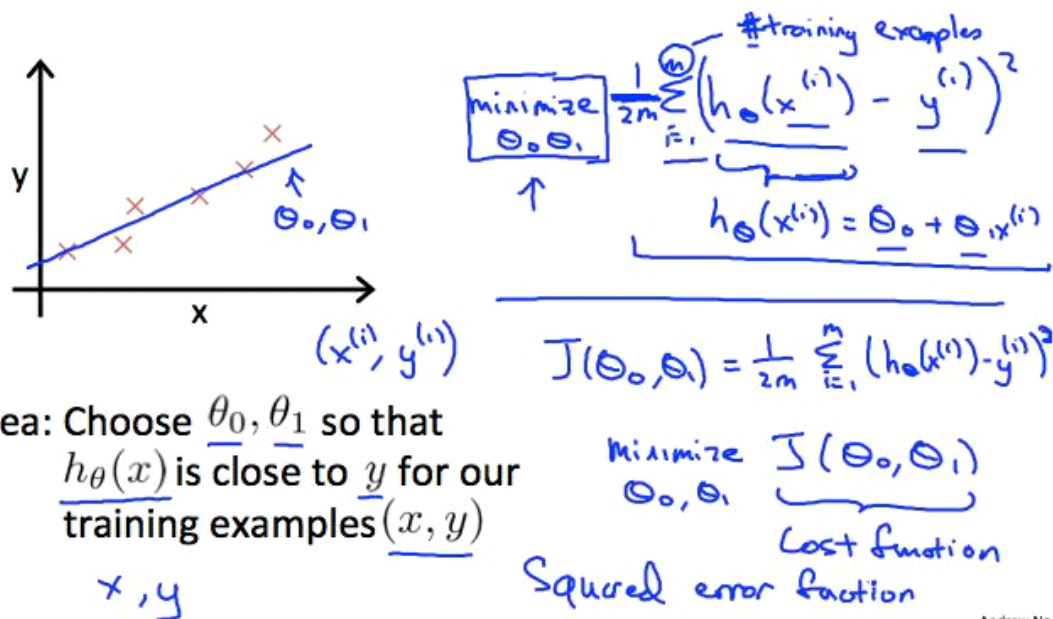 y
x
θ₀, θ₁
(x⁽ⁱ⁾, y⁽ⁱ⁾)
ea: Choose θ₀, θ₁ so that
h_θ(x) is close to y for our
training examples (x, y)
x, y
#training examples
minimize
θ₀ θ₁
1/2m Σ_{i=1}^{m} (h_θ(x⁽ⁱ⁾) - y⁽ⁱ⁾)²
h_θ(x⁽ⁱ⁾) = θ₀ + θ₁x⁽ⁱ⁾
J(θ₀, θ₁) = 1/2m Σ_{i=1}^{m} (h_θ(x⁽ⁱ⁾) - y⁽ⁱ⁾)²
minimize J(θ₀, θ₁)
θ₀, θ₁
Cost function
Squared error faction